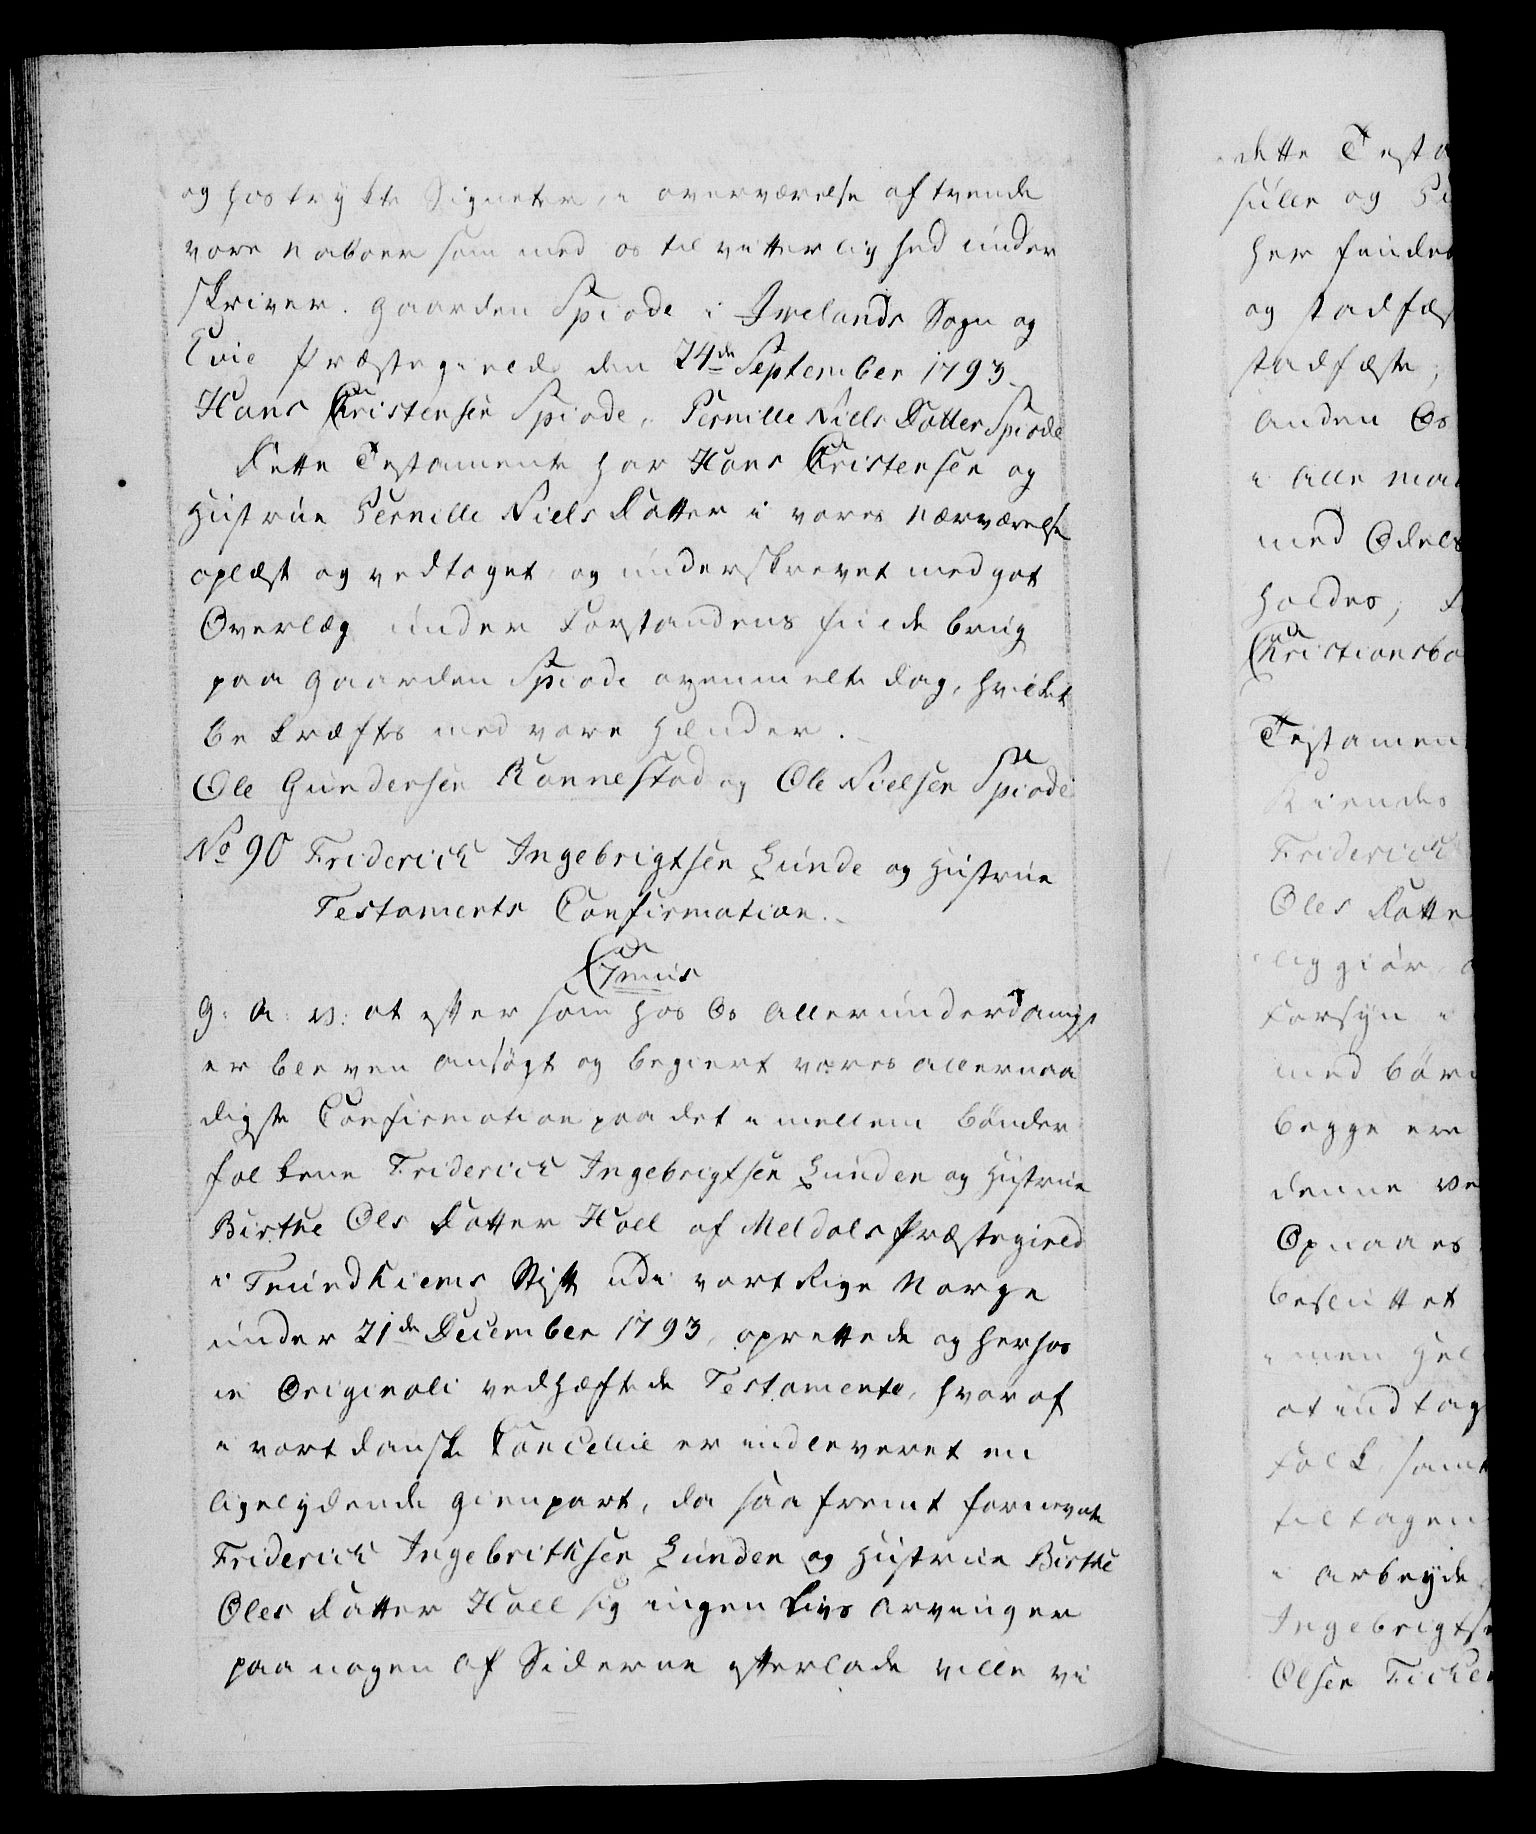 og hostrykte Signeter, i overværelse af tvende
vore naboer som med os til vitterlighed under
skriver. Gaarden Spiode i Ivelands Sogn og
Evie Præstegield den 24de September 1793.
Hans Christensen Spiode. Pernille Niels Datter Spiode
Dette Testamente har Hans Christensen og
Hustrue Pernille Niels Datter i vores nærværelse
oplæst og vedtaget og underskrevet med got
Overlæg under Forstandens fulde brug
paa Gaarden Spiode ovenmelte dag, hvilket
bekræftes med vore Hænder.
Ole Gundersen Ronnestad og Ole Nielsen Spiode
No 90 Friderich Ingebrigtsen Lunde og Hustrue
Testaments Confirmation.
C 7mus
G: A: V: at efter som hos Os allerunderdanigst
er bleven ansøgt og begiert vores allernaa
digste Confirmation paa det imellem bønder
folkene Friderich Ingebrigtsen Lunden og Hustrue
Birthe Ols Datter Hoel af Meldals Præstegield
i Trundhiems Stift udi vort Rige Norge
under 21de December 1793, oprettede og herhos
in Originali vedhæftede Testamente, hvoraf
i vort danske Cancellie er indleveret en
ligelydende Gienpart, da saafremt fornevnte
Friderich Ingebrithsen Lunden og Hustrue Birthe
Oles Datter Hoel sig ingen Livs Arvinger
paa nogen af Siderne efterlade ville vi
dette Testa
fulde og
her findes
og stadfæs
stadfæste,
anden Os
i alle maa
med Odels
holdes,
Christiansbo
Testamen
Kiendes
Friderich
Oles Datte
liggiør
Forsyn i
med børn
begge ere
denne Ve
Opnaaes
besluttet
men
at indtag
Folk, samt
tiltagen
i arbeyde
Ingebrigtse
Olsen